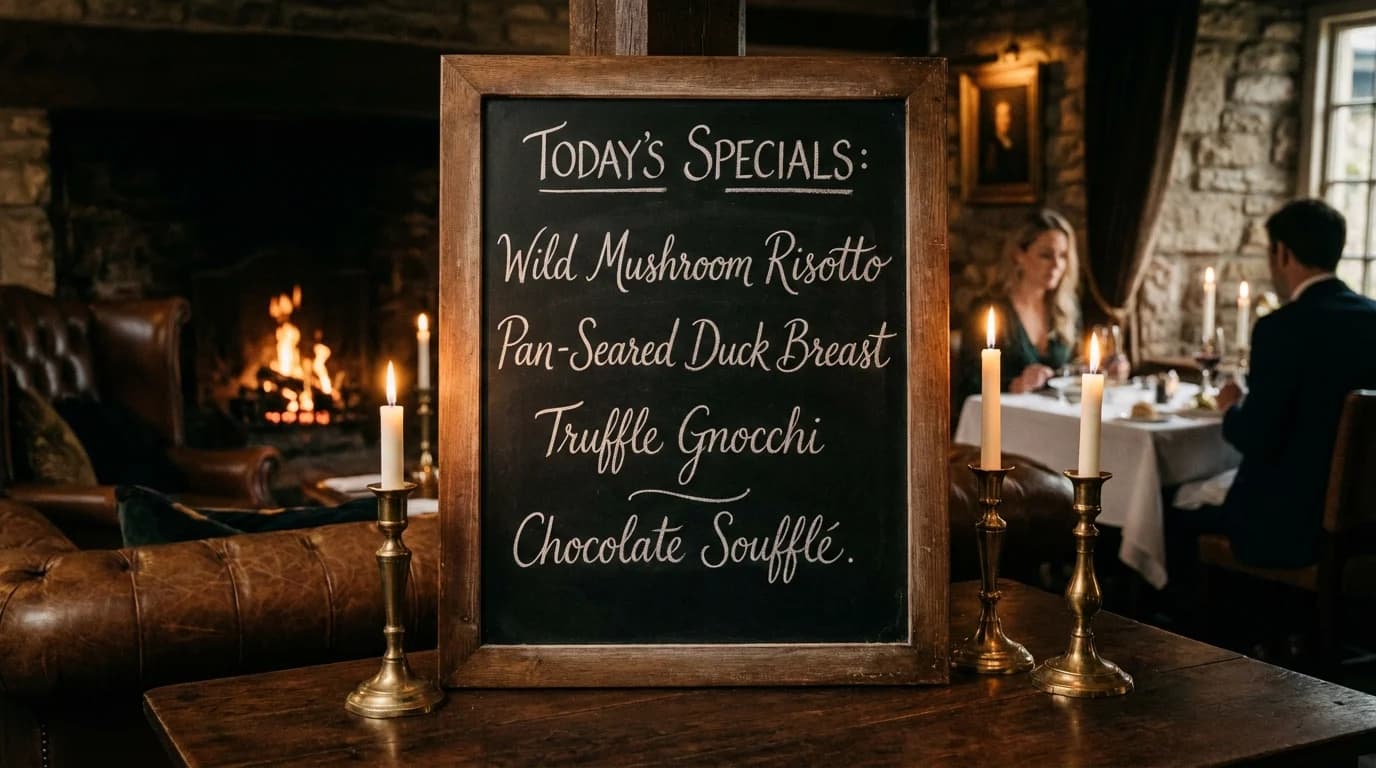 Today's Specials:
Wild Mushroom Risotto
Pan-Seared Duck Breast
Truffle Gnocchi
Chocolate Soufflé.